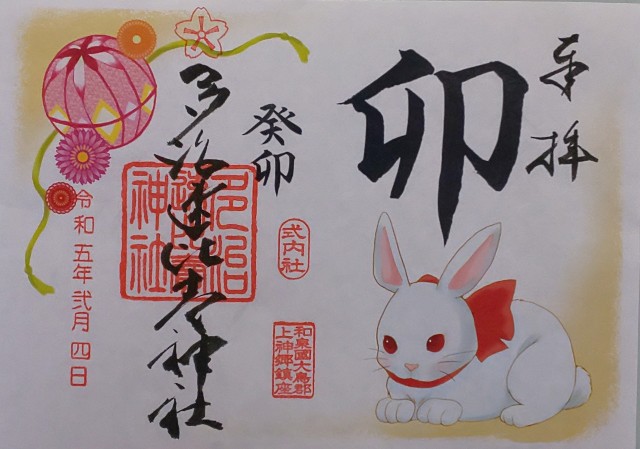 奉拝
卯
癸卯
式内社
和泉國大鳥郡
上神郷鎮座
多治速比売神社
令和五年弐月四日